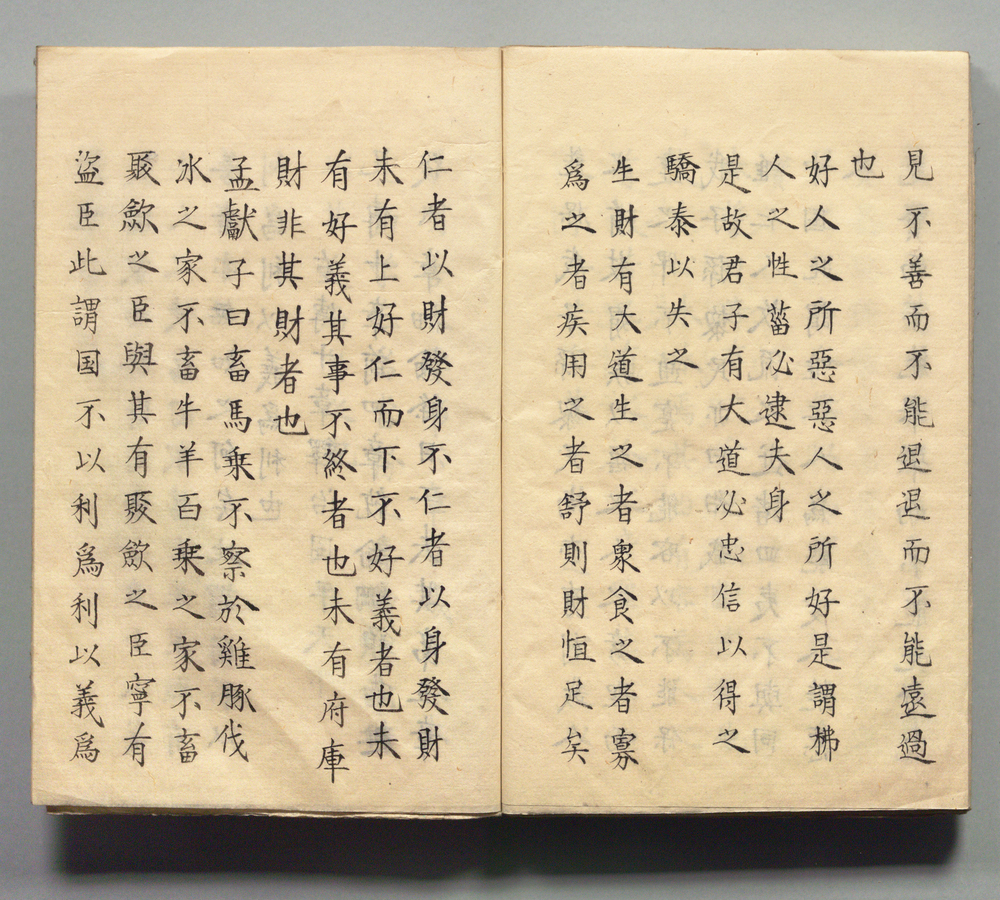 見不善而不能退退而不能遠過
也
好人之所惡惡人之所好是謂拂
人之性菑必逮夫身
是故君子有大道必忠信以得之
驕泰以失之
生財有大道生之者衆食之者寡
爲之者疾用之者舒則財恒足矣
仁者以財發身不仁者以身發財
未有上好仁而下不好義者也未
有好義其事不終者也未有府庫
財非其財者也
孟獻子曰畜馬乗不察於雞豚伐
冰之家不畜牛羊百乗之家不畜
聚歛之臣與其有聚歛之臣寧有
盜臣此謂国不以利爲利以義爲